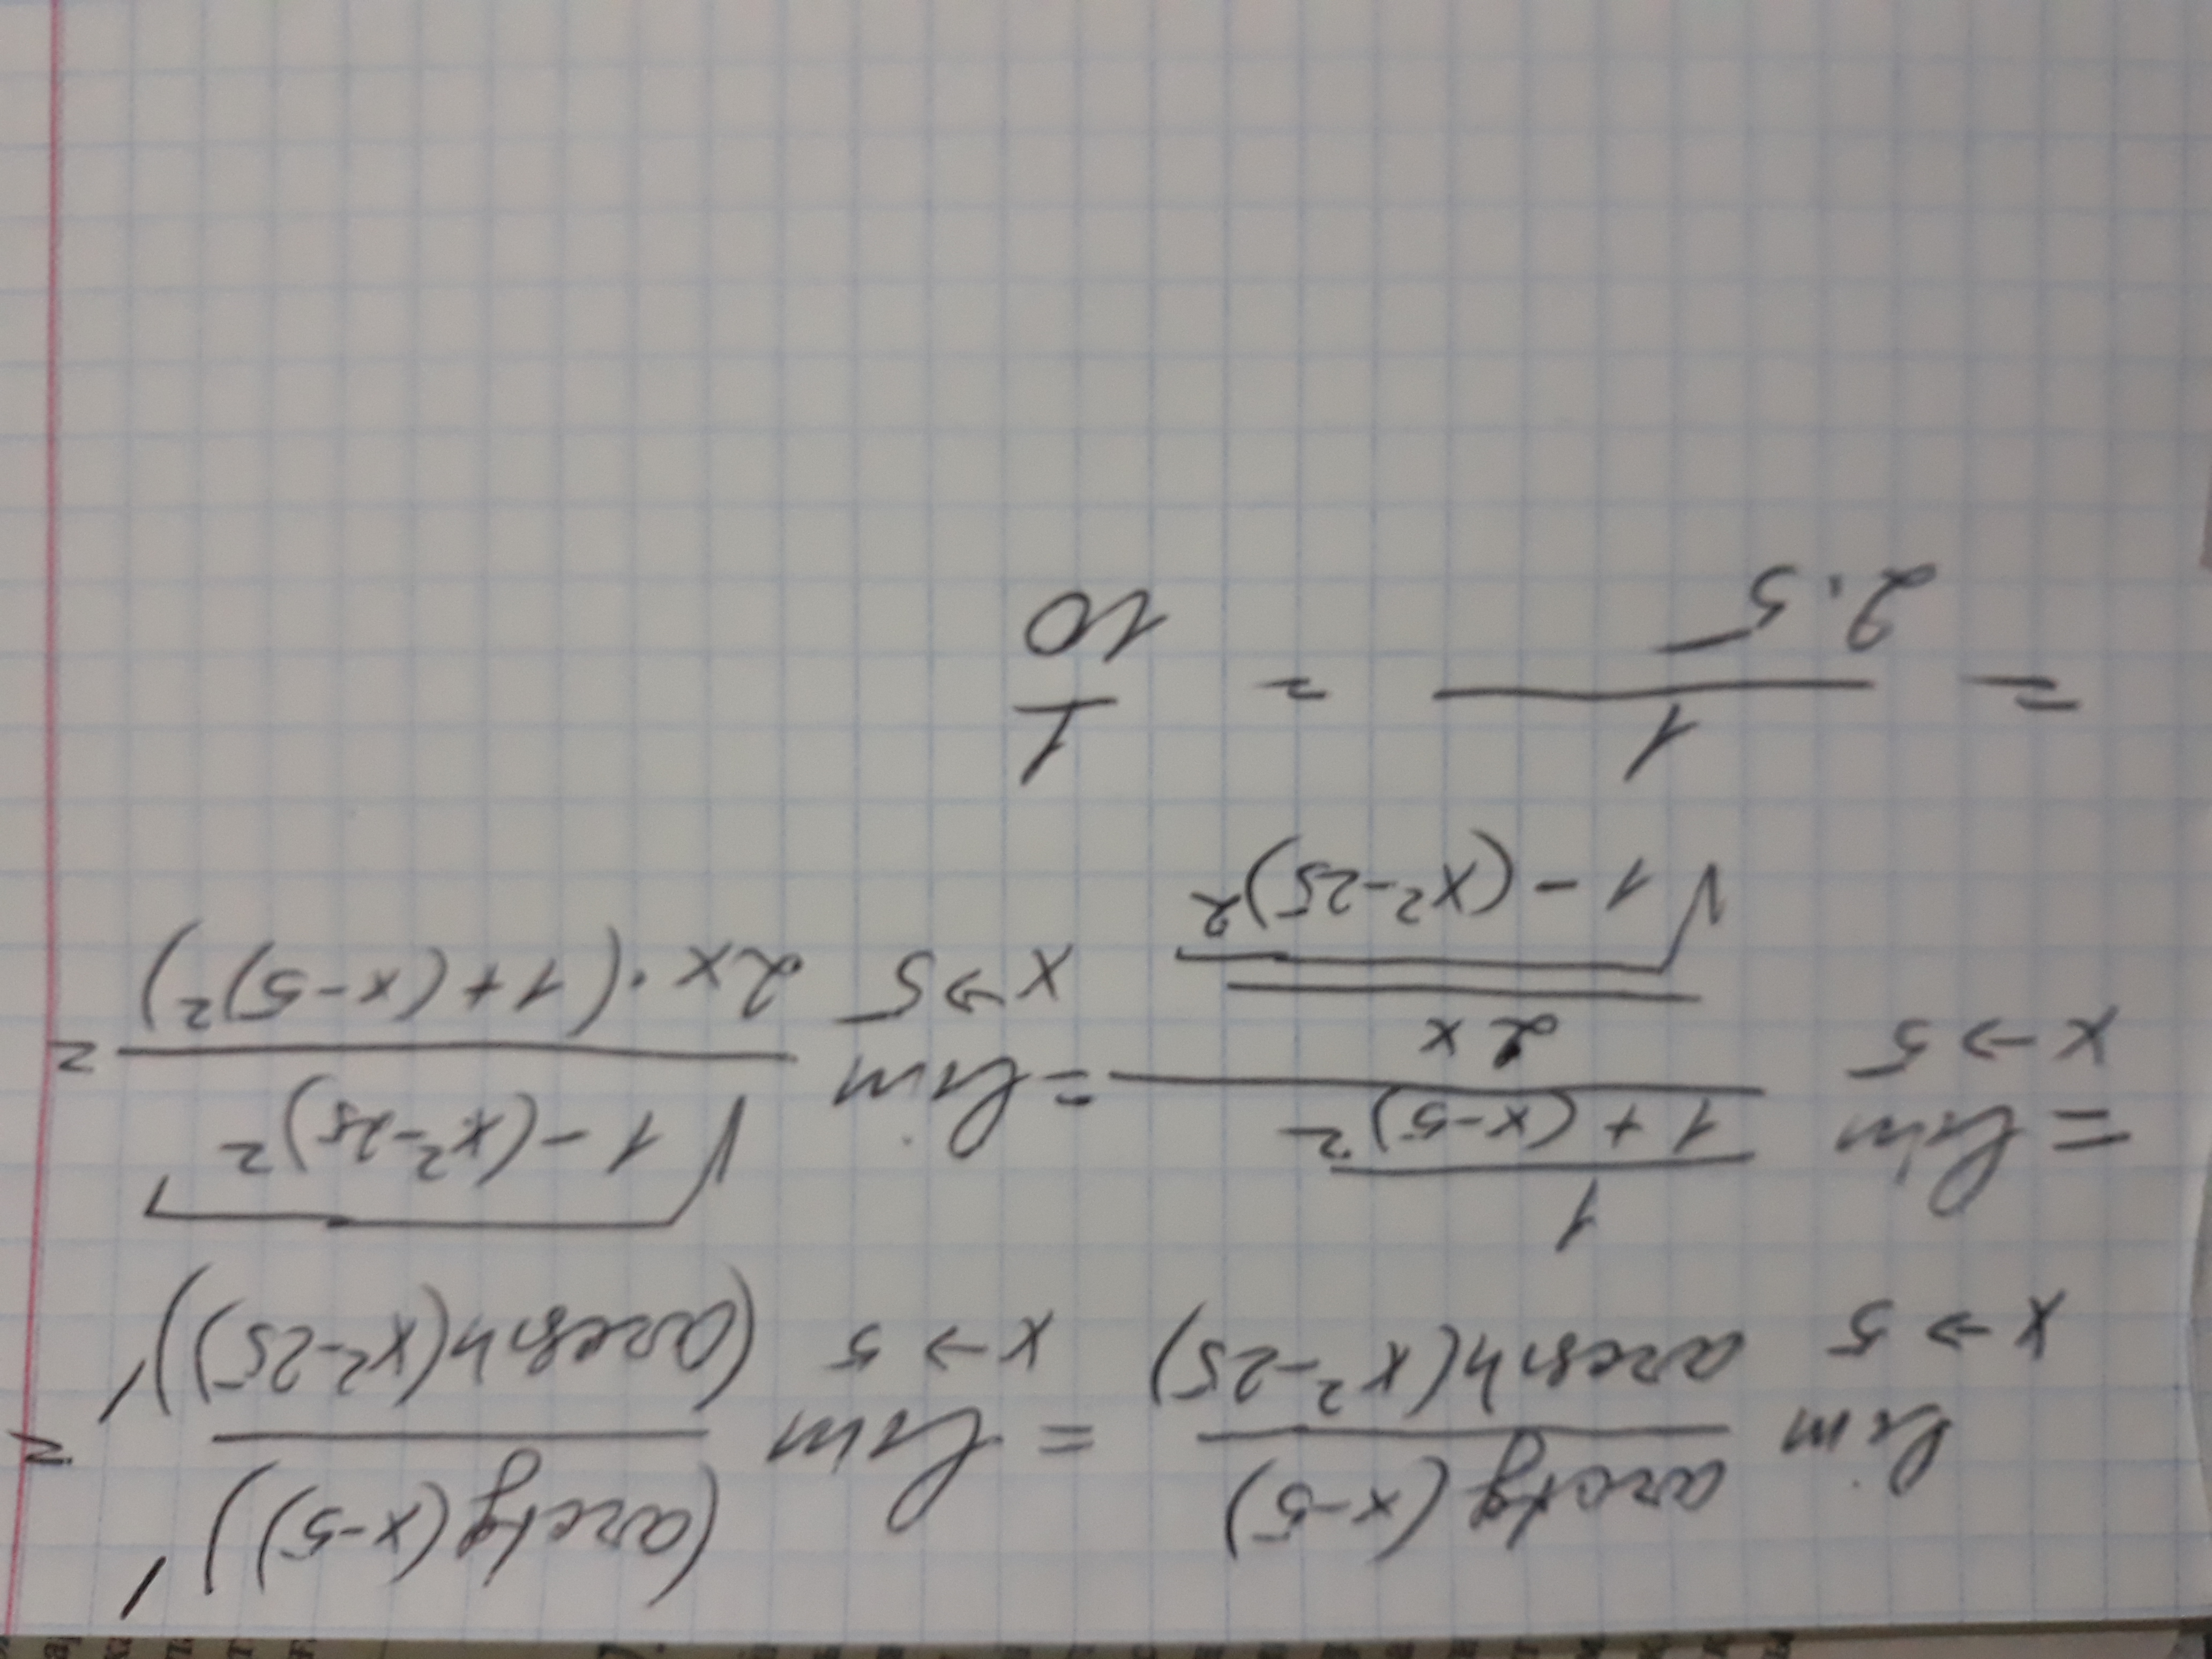 lim x→5 arctg(x-5) / arcsin(x²-25) = lim x→5 (arctg(x-5))' / (arcsin(x²-25))' =
= lim x→5 (1 / (1+(x-5)²)) / (2x / √(1-(x²-25)²)) = lim x→5 √(1-(x²-25)²) / (2x·(1+(x-5)²)) =
= 1 / (2·5) = 1/10